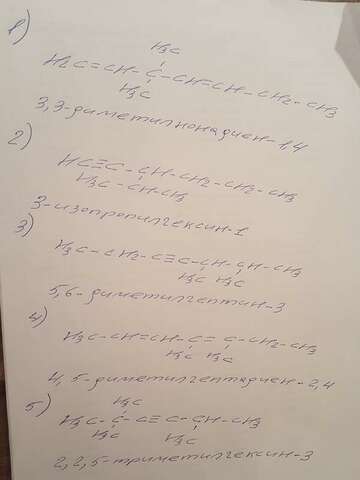 1)
H3C
H2C=CH-C-CH=CH-CH2-CH3
H3C
3,3-диметилнонадиен-1,4
2)
HC≡C-CH-CH2-CH2-CH3
H3C-CH-CH3
3-изопропилгексин-1
3)
H3C-CH2-C≡C-CH-CH-CH3
H3C H3C
5,6-диметилгептин-3
4)
H3C-CH=CH-C=C-CH2-CH3
H3C H3C
4,5-диметилгептадиен-2,4
5)
H3C
H3C-C-C≡C-CH-CH3
H3C H3C
2,2,5-триметилгексин-3